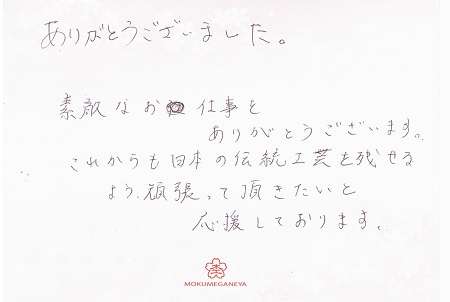 ありがとうございました。
素敵なお仕事を
ありがとうございます。
これからも日本の伝統工芸を残せる
よう、頑張って頂きたいと
応援しております。
MOKUMEGANEYA